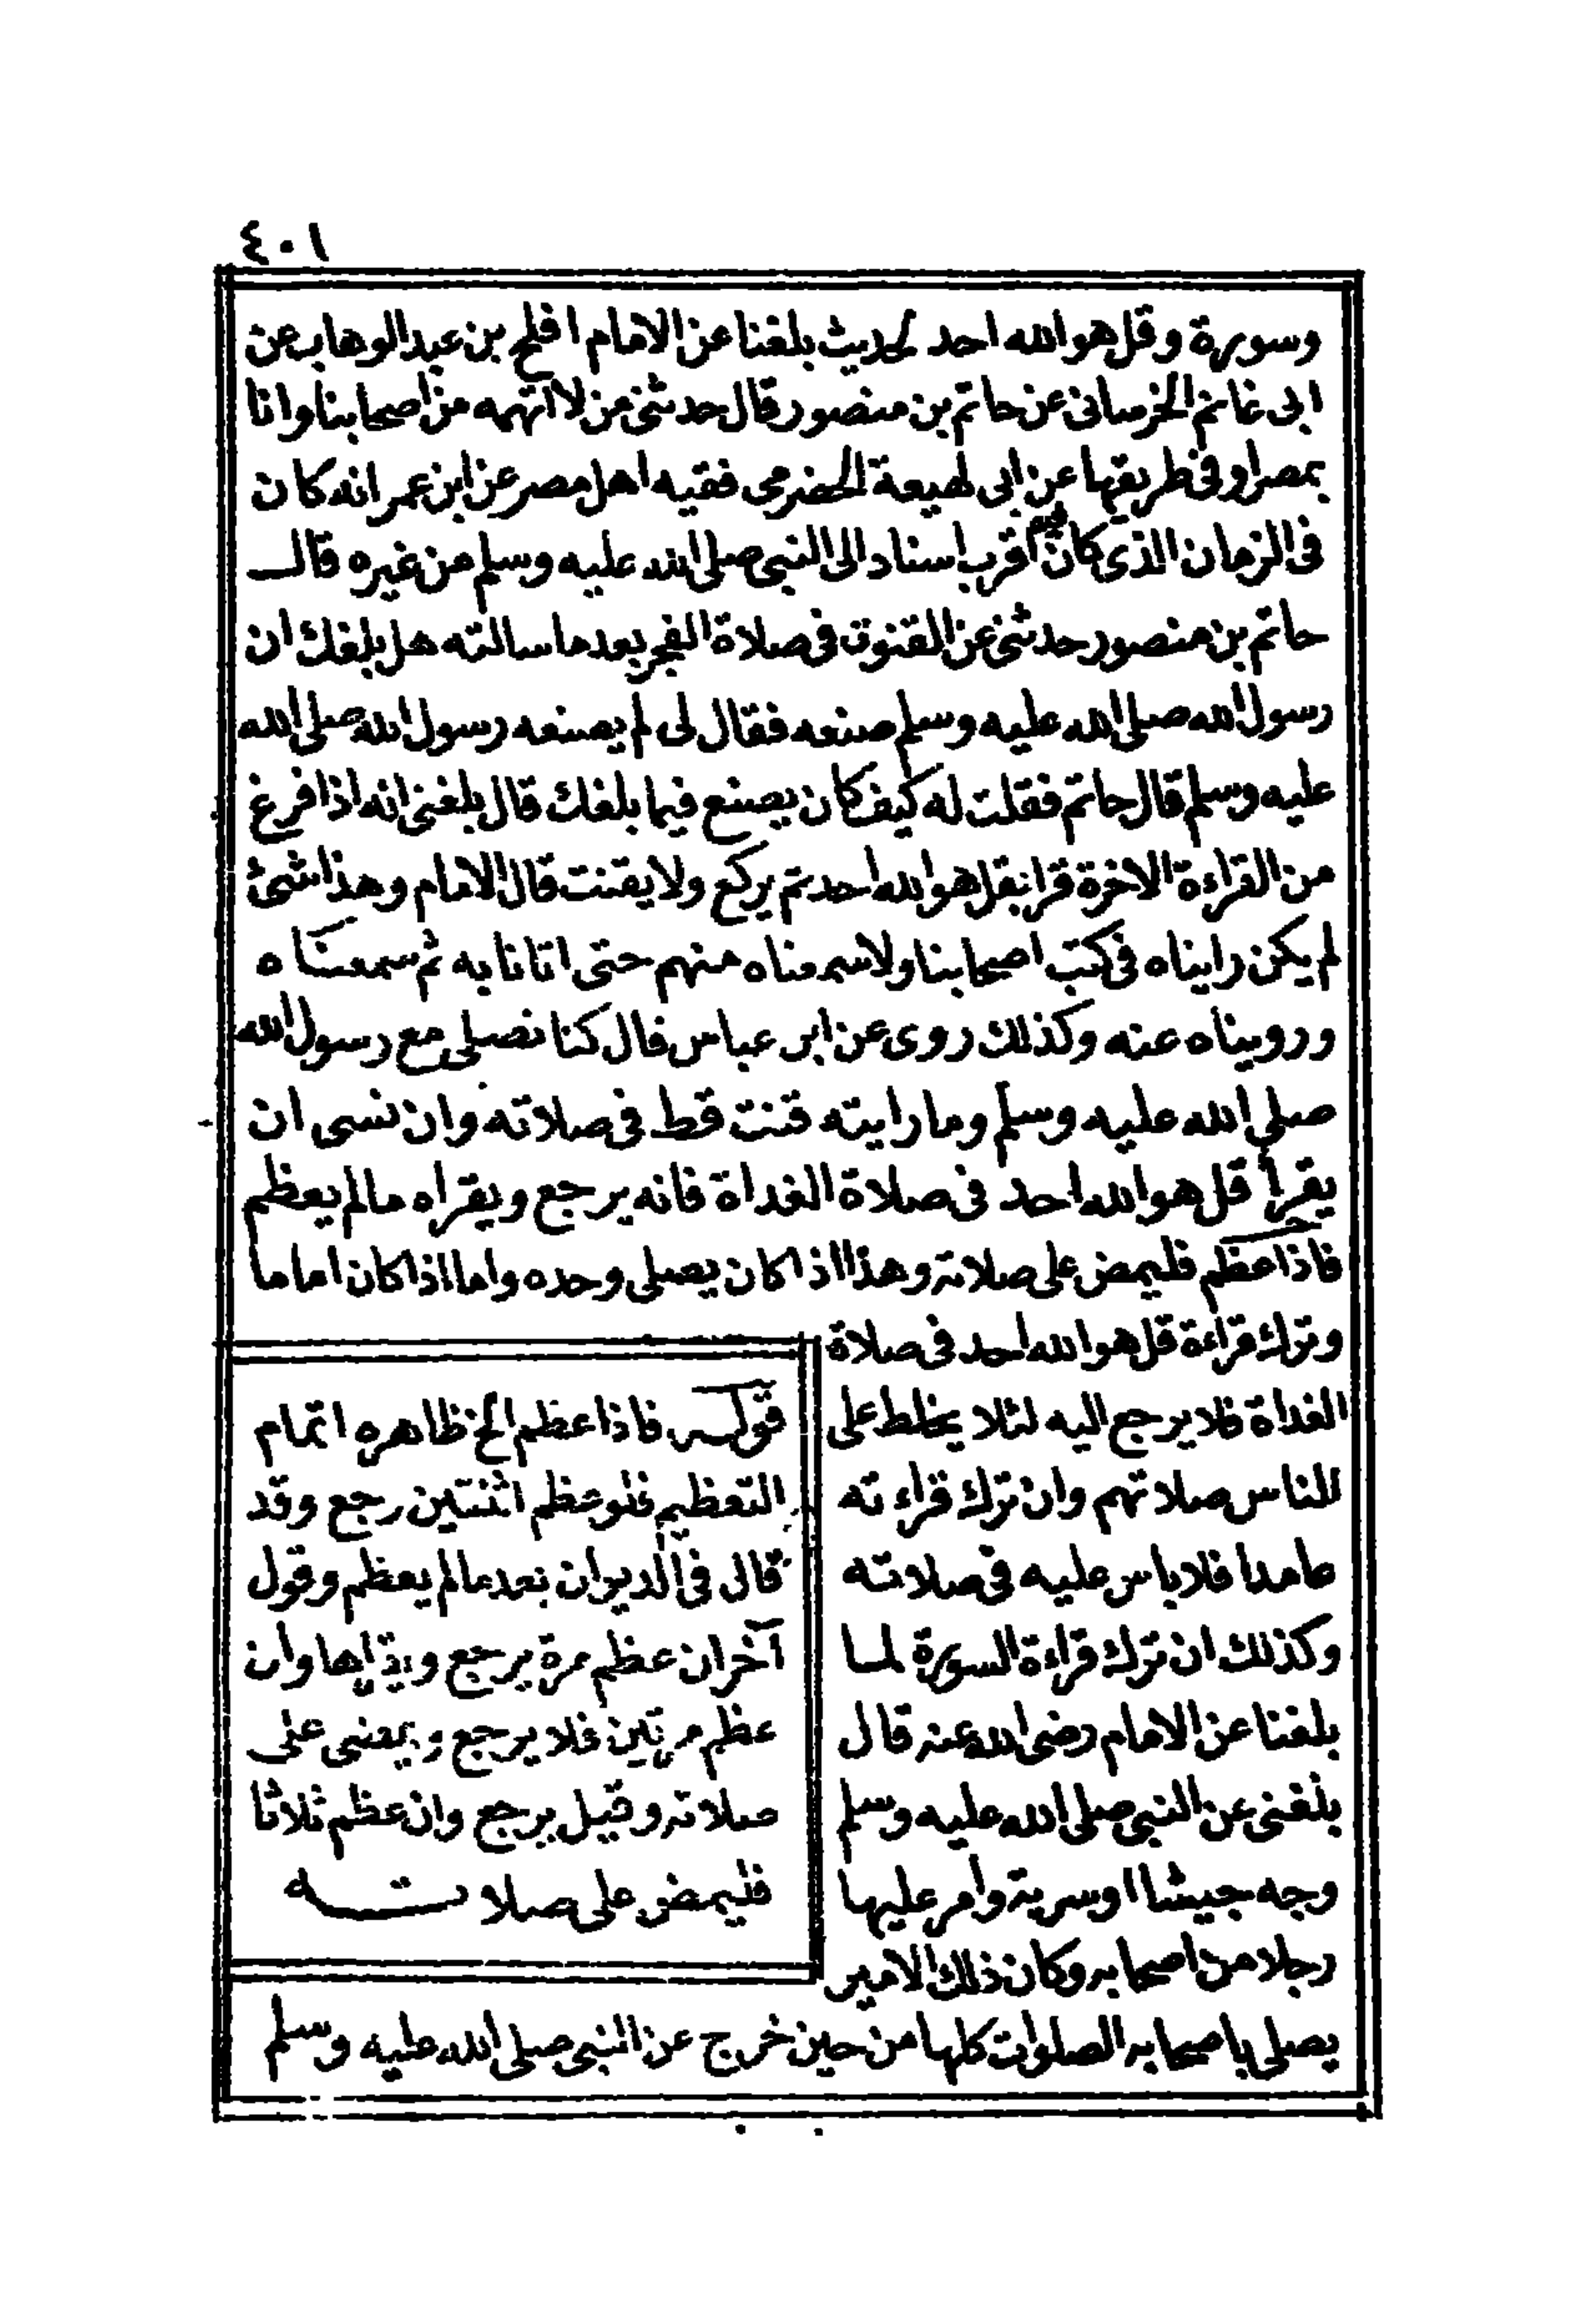 ٤٠١
وسورة وقل هو الله احد لحديث بلغنا عن الامام افلح بن عبد الوهاب عن
ابى غانم الخرسانى عن حاتم بن منصور قال حدثنى من لا اتهمه من اصحابنا وانا
بمصر او فى طريقها عن ابى لهيعة الحضرمى فقيه اهل مصر عن ابن عمر انه كان
فى الزمان الذى كان فيه اقرب اسناد الى النبى صلى الله عليه وسلم من غيره قال
حاتم بن منصور حدثنى عن القنوت فى صلاة الفجر بعد ما سالته هل بلغك ان
رسول الله صلى الله عليه وسلم صنعه فقال لى لم يصنعه رسول الله صلى الله
عليه وسلم قال حاتم فقلت له كيف كان يصنع فيما بلغك قال بلغنى انه اذا فرغ
من القراءة الاخرة قرا بقل هو الله احد ثم يركع ولا يقنت قال الامام وهذا شئ
لم يكن رايناه فى كتب اصحابنا ولا سمعناه منهم حتى اتانا به ثم سمعناه
ورويناه عنه وكذلك روى عن ابن عباس قال كنا نصلى مع رسول الله
صلى الله عليه وسلم وما رايته قنت قط فى صلاته وان نسى ان
يقرأ قل هو الله احد فى صلاة الغداة فانه يرجع ويقراه ما لم يعظم
فاذا عظم فليمض على صلاته وهذا اذا كان يصلى وحده واما اذا كان اماما
وترك قراءة قل هو الله احد فى صلاة
الغداة فلا يرجع اليه لئلا يخلط على
للناس صلاتهم وان ترك قراءته
عامدا فلا باس عليه فى صلاته
وكذلك ان ترك قراءة السورة لما
بلغنا عن الامام رضى الله عنه قال
بلغنى عن النبى صلى الله عليه وسلم
وجه جيشا او سرية وأمر عليها
رجلا من اصحابه وكان ذلك الامير
يصلى باصحابه الصلوات كلها من حين خرج عن النبى صلى الله عليه وسلم
قوله فاذا عظم الخ ظاهره اتمام
التعظيم فلو عظم اثنتين رجع وقد
قال فى الديوان بعد ما لم يعظم وقول
آخر ان عظم مرة يرجع ويقراها وأن
عظم مرتين فلا يرجع ويمضى على
صلاته وقيل يرجع وان عظم ثلاثا
فليمض على صلاته